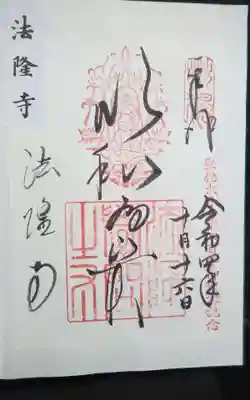 奉拝
令和四年
十月十六日
以和為貴
法隆寺
法隆寺